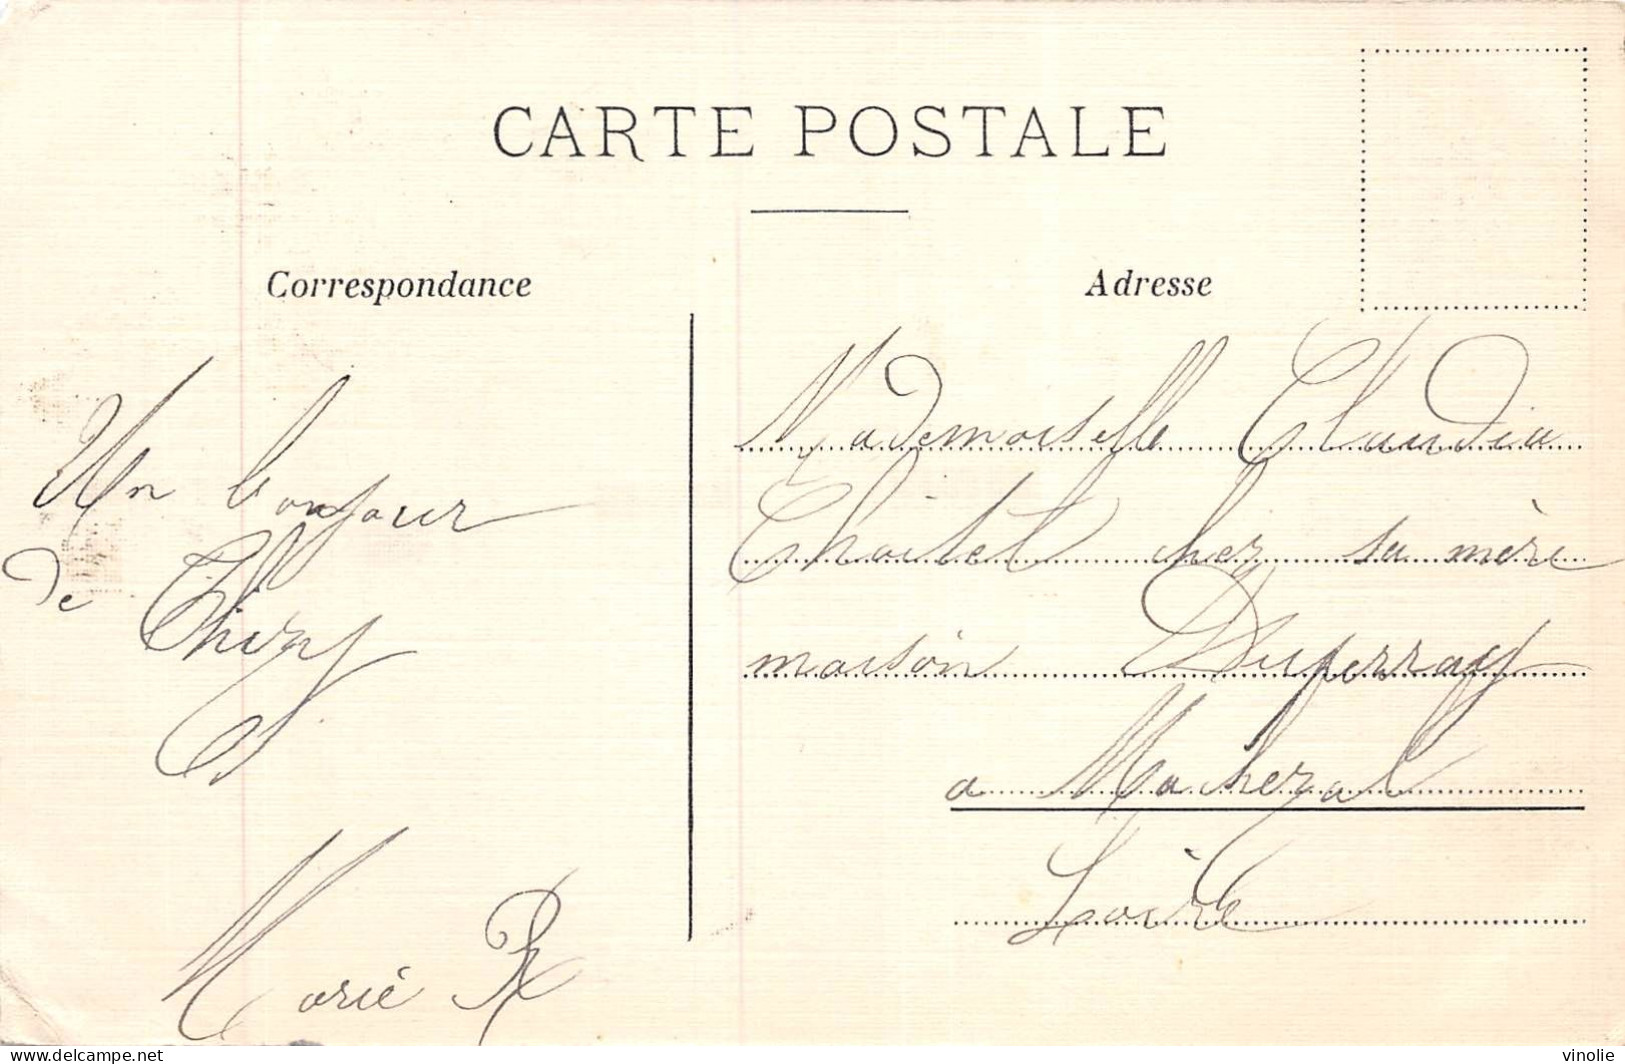 CARTE POSTALE
Correspondance
Un bonjour
de Thizy
Marie R
Adresse
Mademoiselle Claudia
Choitel chez sa mère
maison Duperray
a Machezal
Loire
delcampe.net
vinolie